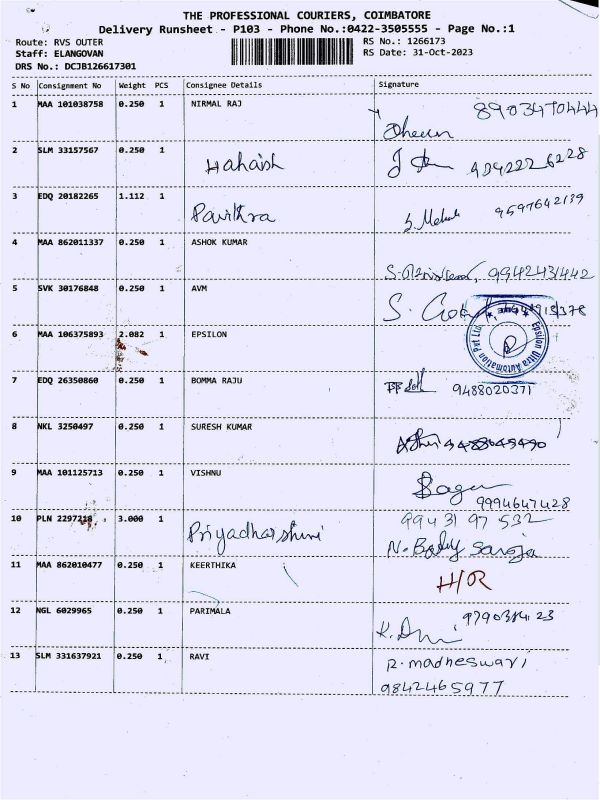 THE PROFESSIONAL COURIERS, COIMBATORE
Delivery Runsheet - P103 - Phone No.:0422-3505555 - Page No.:1
Route: RVS OUTER
Staff: ELANGOVAN
DRS No.: DCJB126617301
RS No.: 1266173
RS Date: 31-Oct-2023
S No Consignment No Weight PCS Consignee Details Signature
1 MAA 101038758 0.250 1 NIRMAL RAJ 8903470444
2 SLM 33157567 0.250 1
3 EDQ 20182265 1.112 1 Pavithra 9597642139
4 MAA 862011337 0.250 1 ASHOK KUMAR 9942431442
5 SVK 30176848 0.250 1 AVM
6 MAA 106375893 2.082 1 EPSILON Epsilon Ultra Automation Pvt Ltd
7 EDQ 26350860 0.250 1 BOMMA RAJU 9488020371
8 NKL 3250497 0.250 1 SURESH KUMAR
9 MAA 101125713 0.250 1 VISHNU Sagar 9994647428
10 PLN 2297218 3.000 1 Priyadharshini 99431 97 532
N. Saroja
11 MAA 862010477 0.250 1 KEERTHIKA H/R
12 NGL 6029965 0.250 1 PARIMALA
13 SLM 331637921 0.250 1 RAVI R. madheswari
9842465977